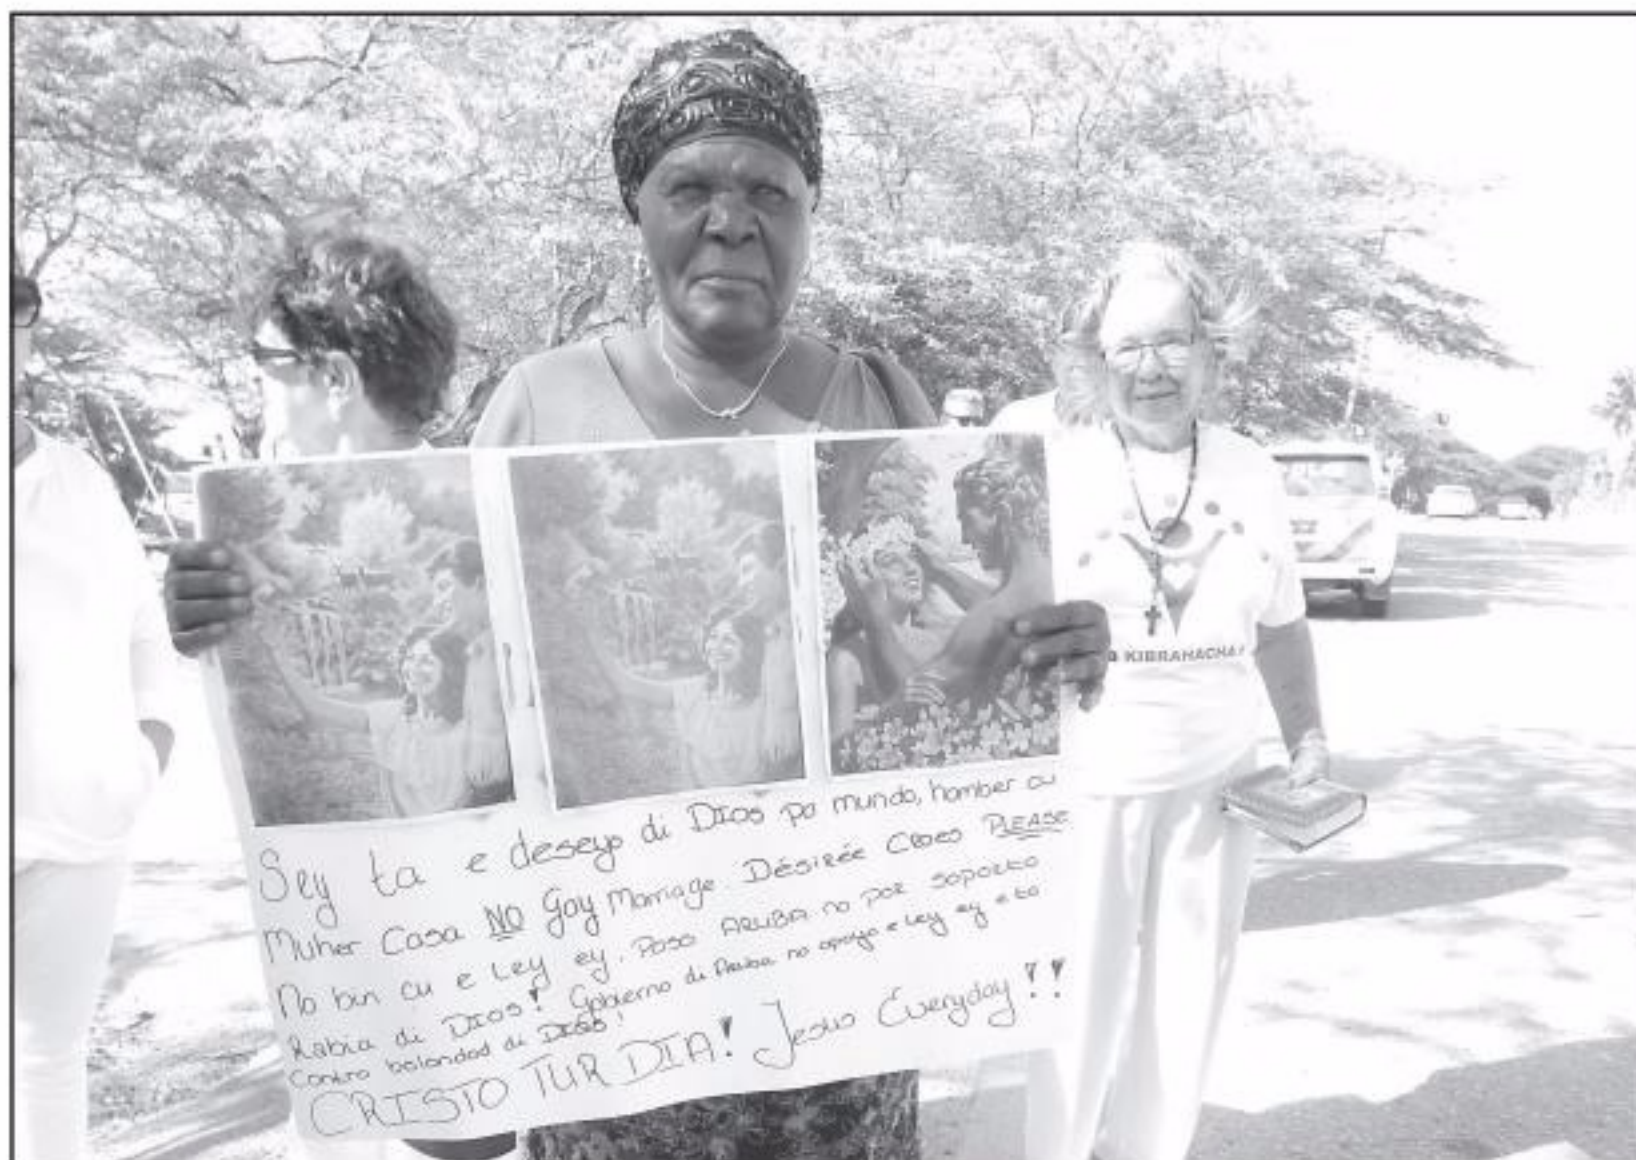 Sey ta e deseyo di DIOS pa mundo, homber cu
Muher Casa NO Gay Marriage. Désirée Croes PLEASE
No bin cu e Ley ey. Paso ARUBA no por soporta
Rabia di DIOS! Gobierno di Aruba no apoya e ley ey e ta
Contra bolondad di DIOS!
CRISTO TUR DIA! Jesus Everyday!!
KIBRAHACHA